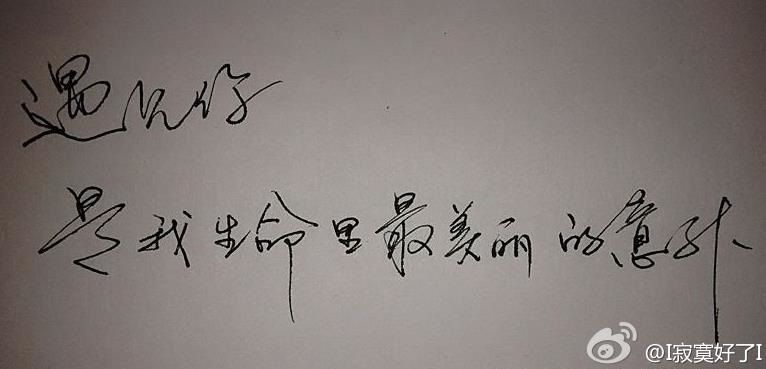 遇见你
是我生命里最美丽的意外
@I寂寞好了I